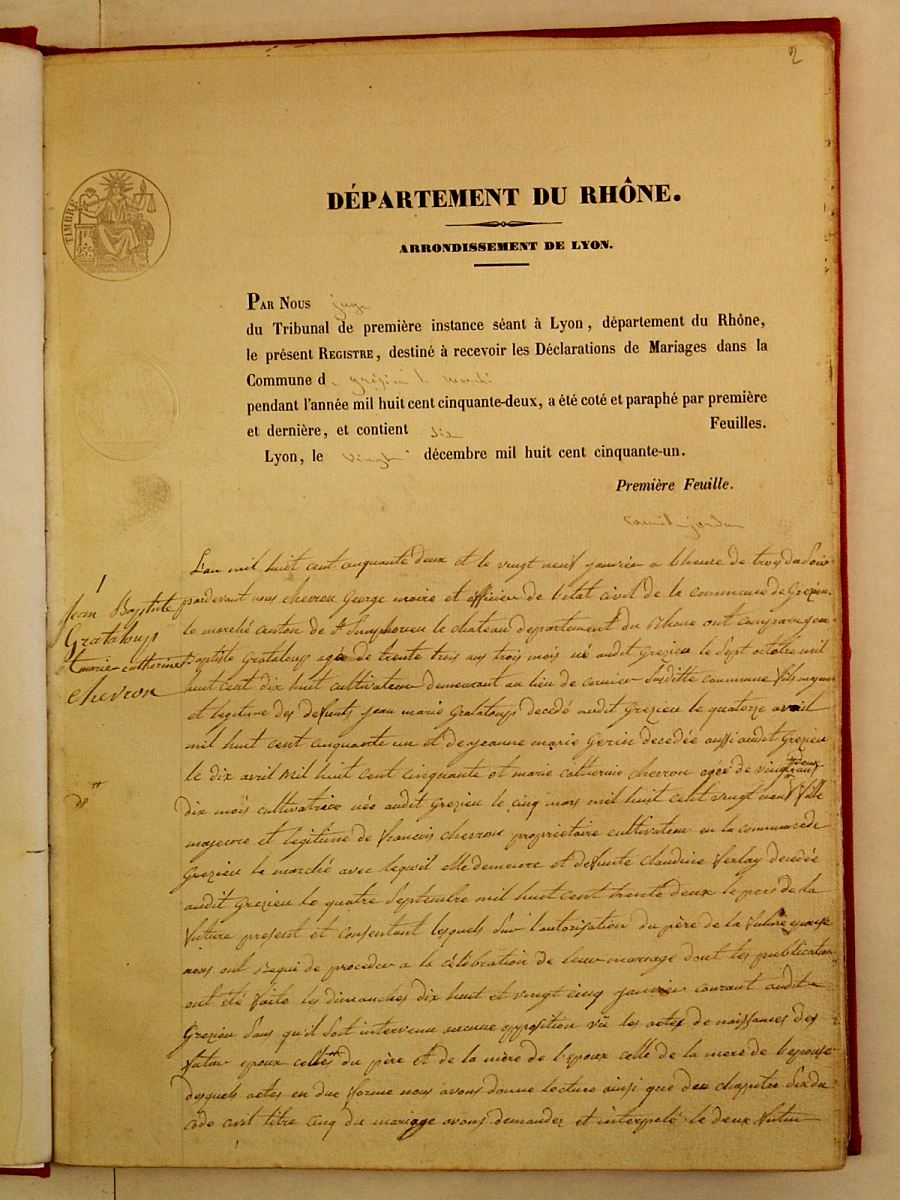 2
TIMBRE
DÉPARTEMENT DU RHÔNE.
ARRONDISSEMENT DE LYON.
PAR NOUS juge
du Tribunal de première instance séant à Lyon, département du Rhône,
le présent REGISTRE, destiné à recevoir les Déclarations de Mariages dans la
Commune d
pendant l'année mil huit cent cinquante-deux, a été coté et paraphé par première
et dernière, et contient dix Feuilles.
Lyon, le vingt décembre mil huit cent cinquante-un.
Première Feuille.
camille jordan
1
Jean Baptiste
Grataloup
et marie catherine
chevron
L'an mil huit cent cinquante deux et le vingt neuf janvier a l'heure de troy du soir
pardevant nous chevron George maire et officier de l'état civil de la commune de Grezieu
le marché canton de St Simphorien le chateau departement du Rhone ont comparu jean
Baptiste Grataloup agé de trente trois ans trois mois né audit Grezieu le sept octobre mil
huit cent dix huit cultivateur demeurant au lieu de susditte commune fils majeur
et legitime des defunts jean marie Grataloup decedé audit Grezieu le quatorze avril
mil huit cent cinquante un et de jeanne marie Gerin decedée aussi audit Grezieu
le dix avril mil huit cent cinquante et marie catherine chevron agée de vingt deux ans
dix mois cultivatrice née audit Grezieu le cinq mars mil huit cent vingt neuf fille
majeure et legitime de francois chevron proprietaire cultivateur en la commune de
Grezieu le marché avec lequel elle demeure et defunte claudine decedée
audit Grezieu le quatre septembre mil huit cent trente deux le pere de la
future present et consentant lesquels sur l'autorisation du père de la future epouse
nous ont requi de proceder a la célébration de leur mariage dont les publication
ont été faite les dimanches dix huit et vingt cinq janvier courant audit
Grezieu sans qu'il soit intervenu aucune opposition vû les actes de naissances des
futur epoux celles du père et de la mère de l'epoux celle de la mere de l'epouse
desquels actes en due forme nous avons donné lecture ainsi que du chapitre six du
code civil titre cinq du mariage avons demander et interpelé le deux futur